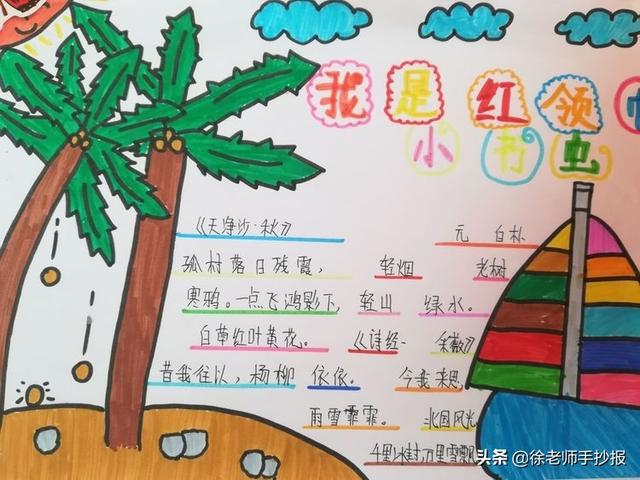 我是红领巾
小书虫
《天净沙·秋》 元 白朴
孤村落日残霞, 轻烟 老树
寒鸦。一点飞鸿影下, 轻山 绿水。
白草红叶黄花。 《诗经·采薇》
昔我往以, 杨柳 依依。 今我来思,
雨雪霏霏。 北国风光
千里冰封万里雪飘
头条 @徐老师手抄报